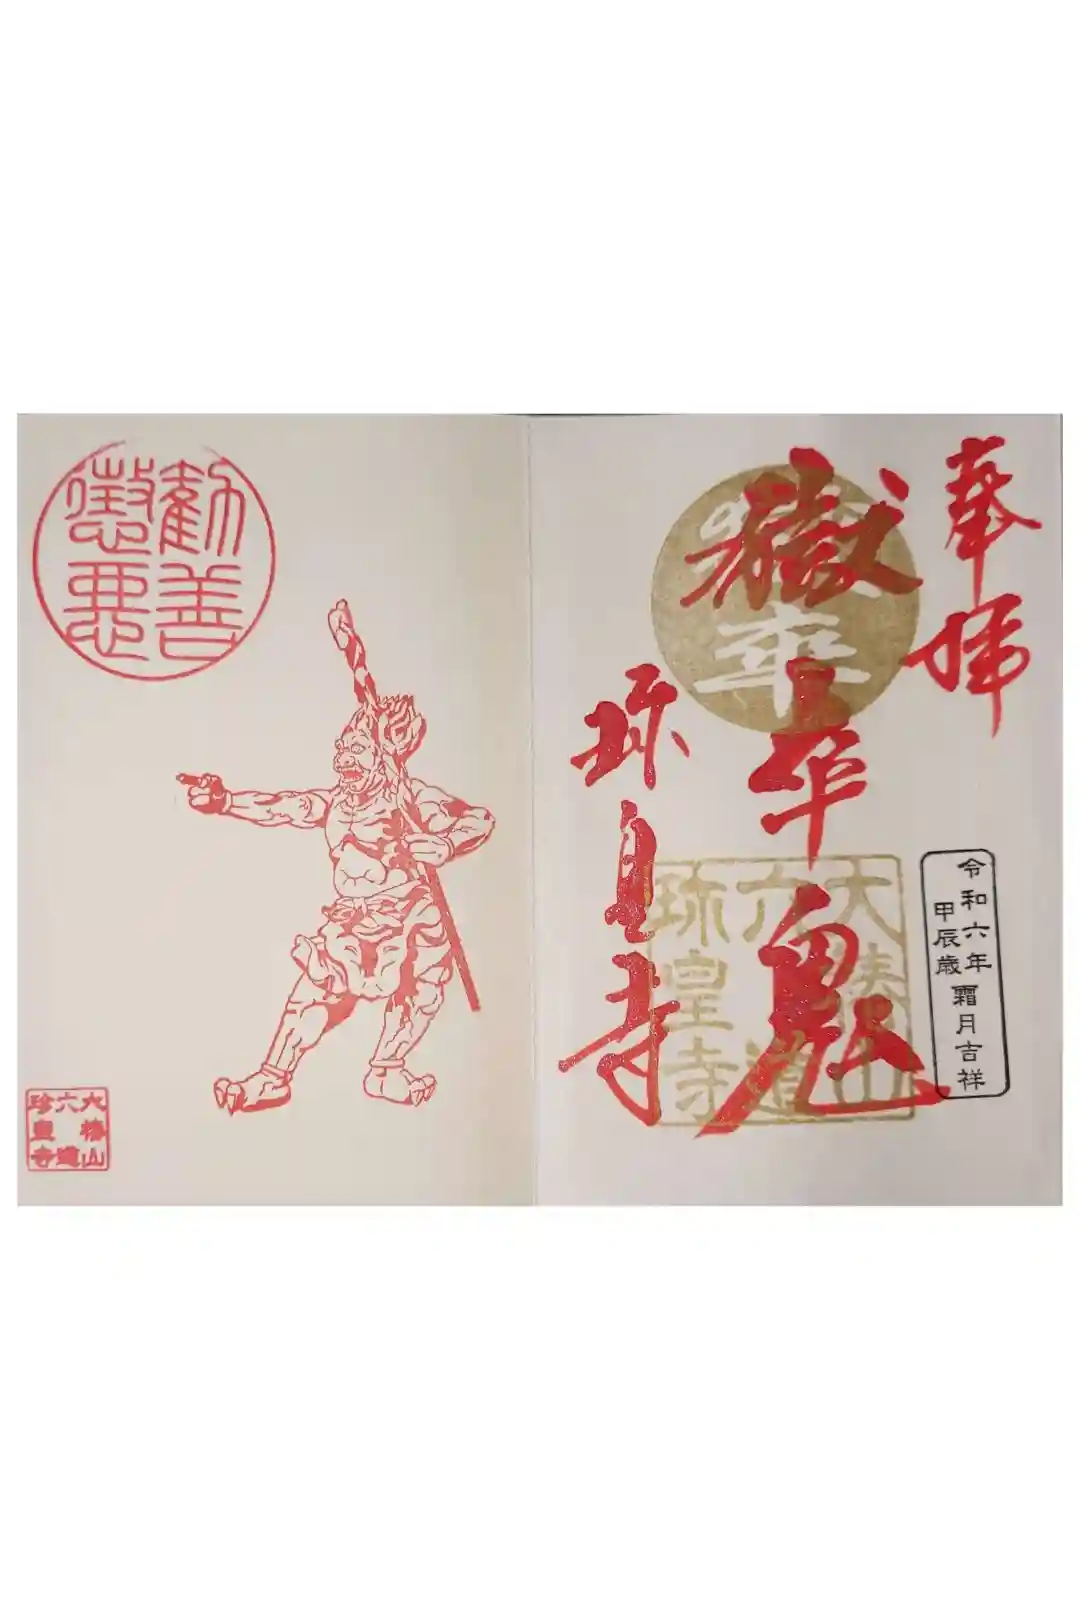 奉拝
獄卒鬼
珎皇寺
大椿山
六道
珎皇寺
令和六年
甲辰歳
霜月吉祥
勸善
懲悪
大椿山
六道
珍皇寺